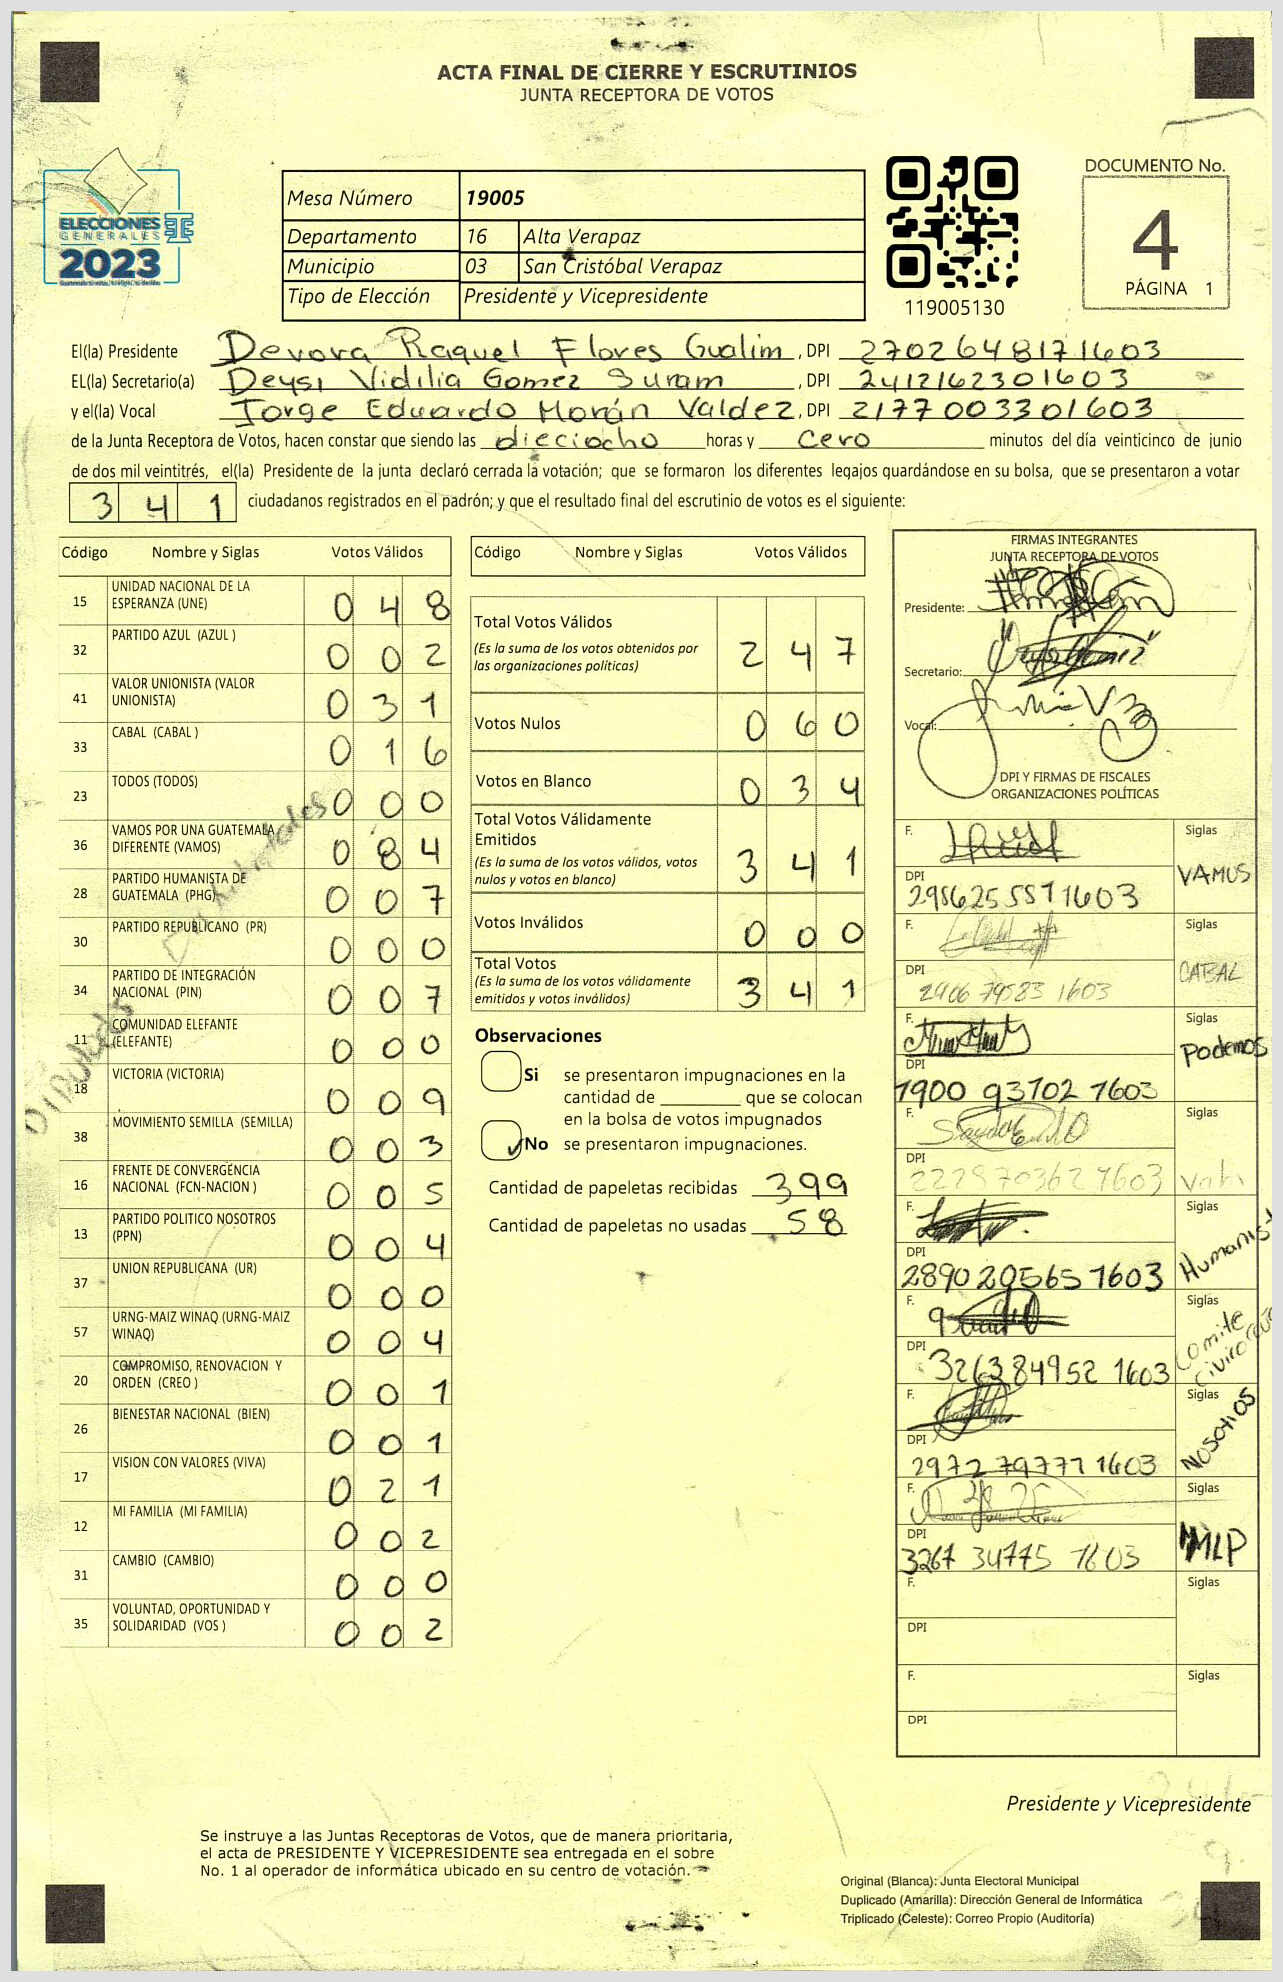 ACTA FINAL DE CIERRE Y ESCRUTINIOS
JUNTA RECEPTORA DE VOTOS
ELECCIONES
GENERALES
2023
Mesa Número 19005
Departamento 16 Alta Verapaz
Municipio 03 San Cristóbal Verapaz
Tipo de Elección Presidente y Vicepresidente
119005130
DOCUMENTO No.
4
PÁGINA 1
El(la) Presidente Devora Raquel Flores Gualim, DPI 2702648171603
EL(la) Secretario(a) Deysi Vidilia Gomez Suram, DPI 2412162301603
y el(la) Vocal Jorge Eduardo Morán Valdez, DPI 2177003301603
de la Junta Receptora de Votos, hacen constar que siendo las dieciocho horas y cero minutos del día veinticinco de junio
de dos mil veintitrés, el(la) Presidente de la junta declaró cerrada la votación; que se formaron los diferentes legajos guardándose en su bolsa, que se presentaron a votar
341 ciudadanos registrados en el padrón; y que el resultado final del escrutinio de votos es el siguiente:
Código Nombre y Siglas Votos Válidos
15 UNIDAD NACIONAL DE LA ESPERANZA (UNE) 048
32 PARTIDO AZUL (AZUL ) 002
41 VALOR UNIONISTA (VALOR UNIONISTA) 031
33 CABAL (CABAL ) 016
23 TODOS (TODOS) 000
36 VAMOS POR UNA GUATEMALA DIFERENTE (VAMOS) 084
28 PARTIDO HUMANISTA DE GUATEMALA (PHG) 007
30 PARTIDO REPUBLICANO (PR) 000
34 PARTIDO DE INTEGRACIÓN NACIONAL (PIN) 007
11 COMUNIDAD ELEFANTE (ELEFANTE) 000
18 VICTORIA (VICTORIA) 009
38 MOVIMIENTO SEMILLA (SEMILLA) 003
16 FRENTE DE CONVERGENCIA NACIONAL (FCN-NACION ) 005
13 PARTIDO POLITICO NOSOTROS (PPN) 004
37 UNION REPUBLICANA (UR) 000
57 URNG-MAIZ WINAQ (URNG-MAIZ WINAQ) 004
20 COMPROMISO, RENOVACION Y ORDEN (CREO ) 001
26 BIENESTAR NACIONAL (BIEN) 001
17 VISION CON VALORES (VIVA) 021
12 MI FAMILIA (MI FAMILIA) 002
31 CAMBIO (CAMBIO) 000
35 VOLUNTAD, OPORTUNIDAD Y SOLIDARIDAD (VOS ) 002
Diputados
Código Nombre y Siglas Votos Válidos
Total Votos Válidos 247
(Es la suma de los votos obtenidos por
las organizaciones políticas)
Votos Nulos 060
Votos en Blanco 034
Total Votos Válidamente
Emitidos 341
(Es la suma de los votos válidos, votos
nulos y votos en blanco)
Votos Inválidos 000
Total Votos 341
(Es la suma de los votos válidamente
emitidos y votos inválidos)
Observaciones
Si se presentaron impugnaciones en la
cantidad de ________ que se colocan
en la bolsa de votos impugnados
No se presentaron impugnaciones.
Cantidad de papeletas recibidas 399
Cantidad de papeletas no usadas 58
FIRMAS INTEGRANTES
JUNTA RECEPTORA DE VOTOS
Presidente:
Secretario:
Vocal:
DPI Y FIRMAS DE FISCALES
ORGANIZACIONES POLÍTICAS
F. Siglas VAMUS
DPI 2986255871603
F. Siglas CABAL
DPI 2906 79583 1603
F. Siglas Podemos
DPI 1900 93702 1603
F. Siglas
DPI 2229703621603
F. Siglas Humanist
DPI 2890 20565 1603
F. Siglas Comite
DPI 326384952 1603
F. Siglas Nosotros
DPI 2972 79777 1603
F. Siglas MLP
DPI 3267 34775 1603
F. Siglas
DPI
F. Siglas
DPI
Presidente y Vicepresidente
Se instruye a las Juntas Receptoras de Votos, que de manera prioritaria,
el acta de PRESIDENTE Y VICEPRESIDENTE sea entregada en el sobre
No. 1 al operador de informática ubicado en su centro de votación.
Original (Blanca): Junta Electoral Municipal
Duplicado (Amarilla): Dirección General de Informática
Triplicado (Celeste): Correo Propio (Auditoría)